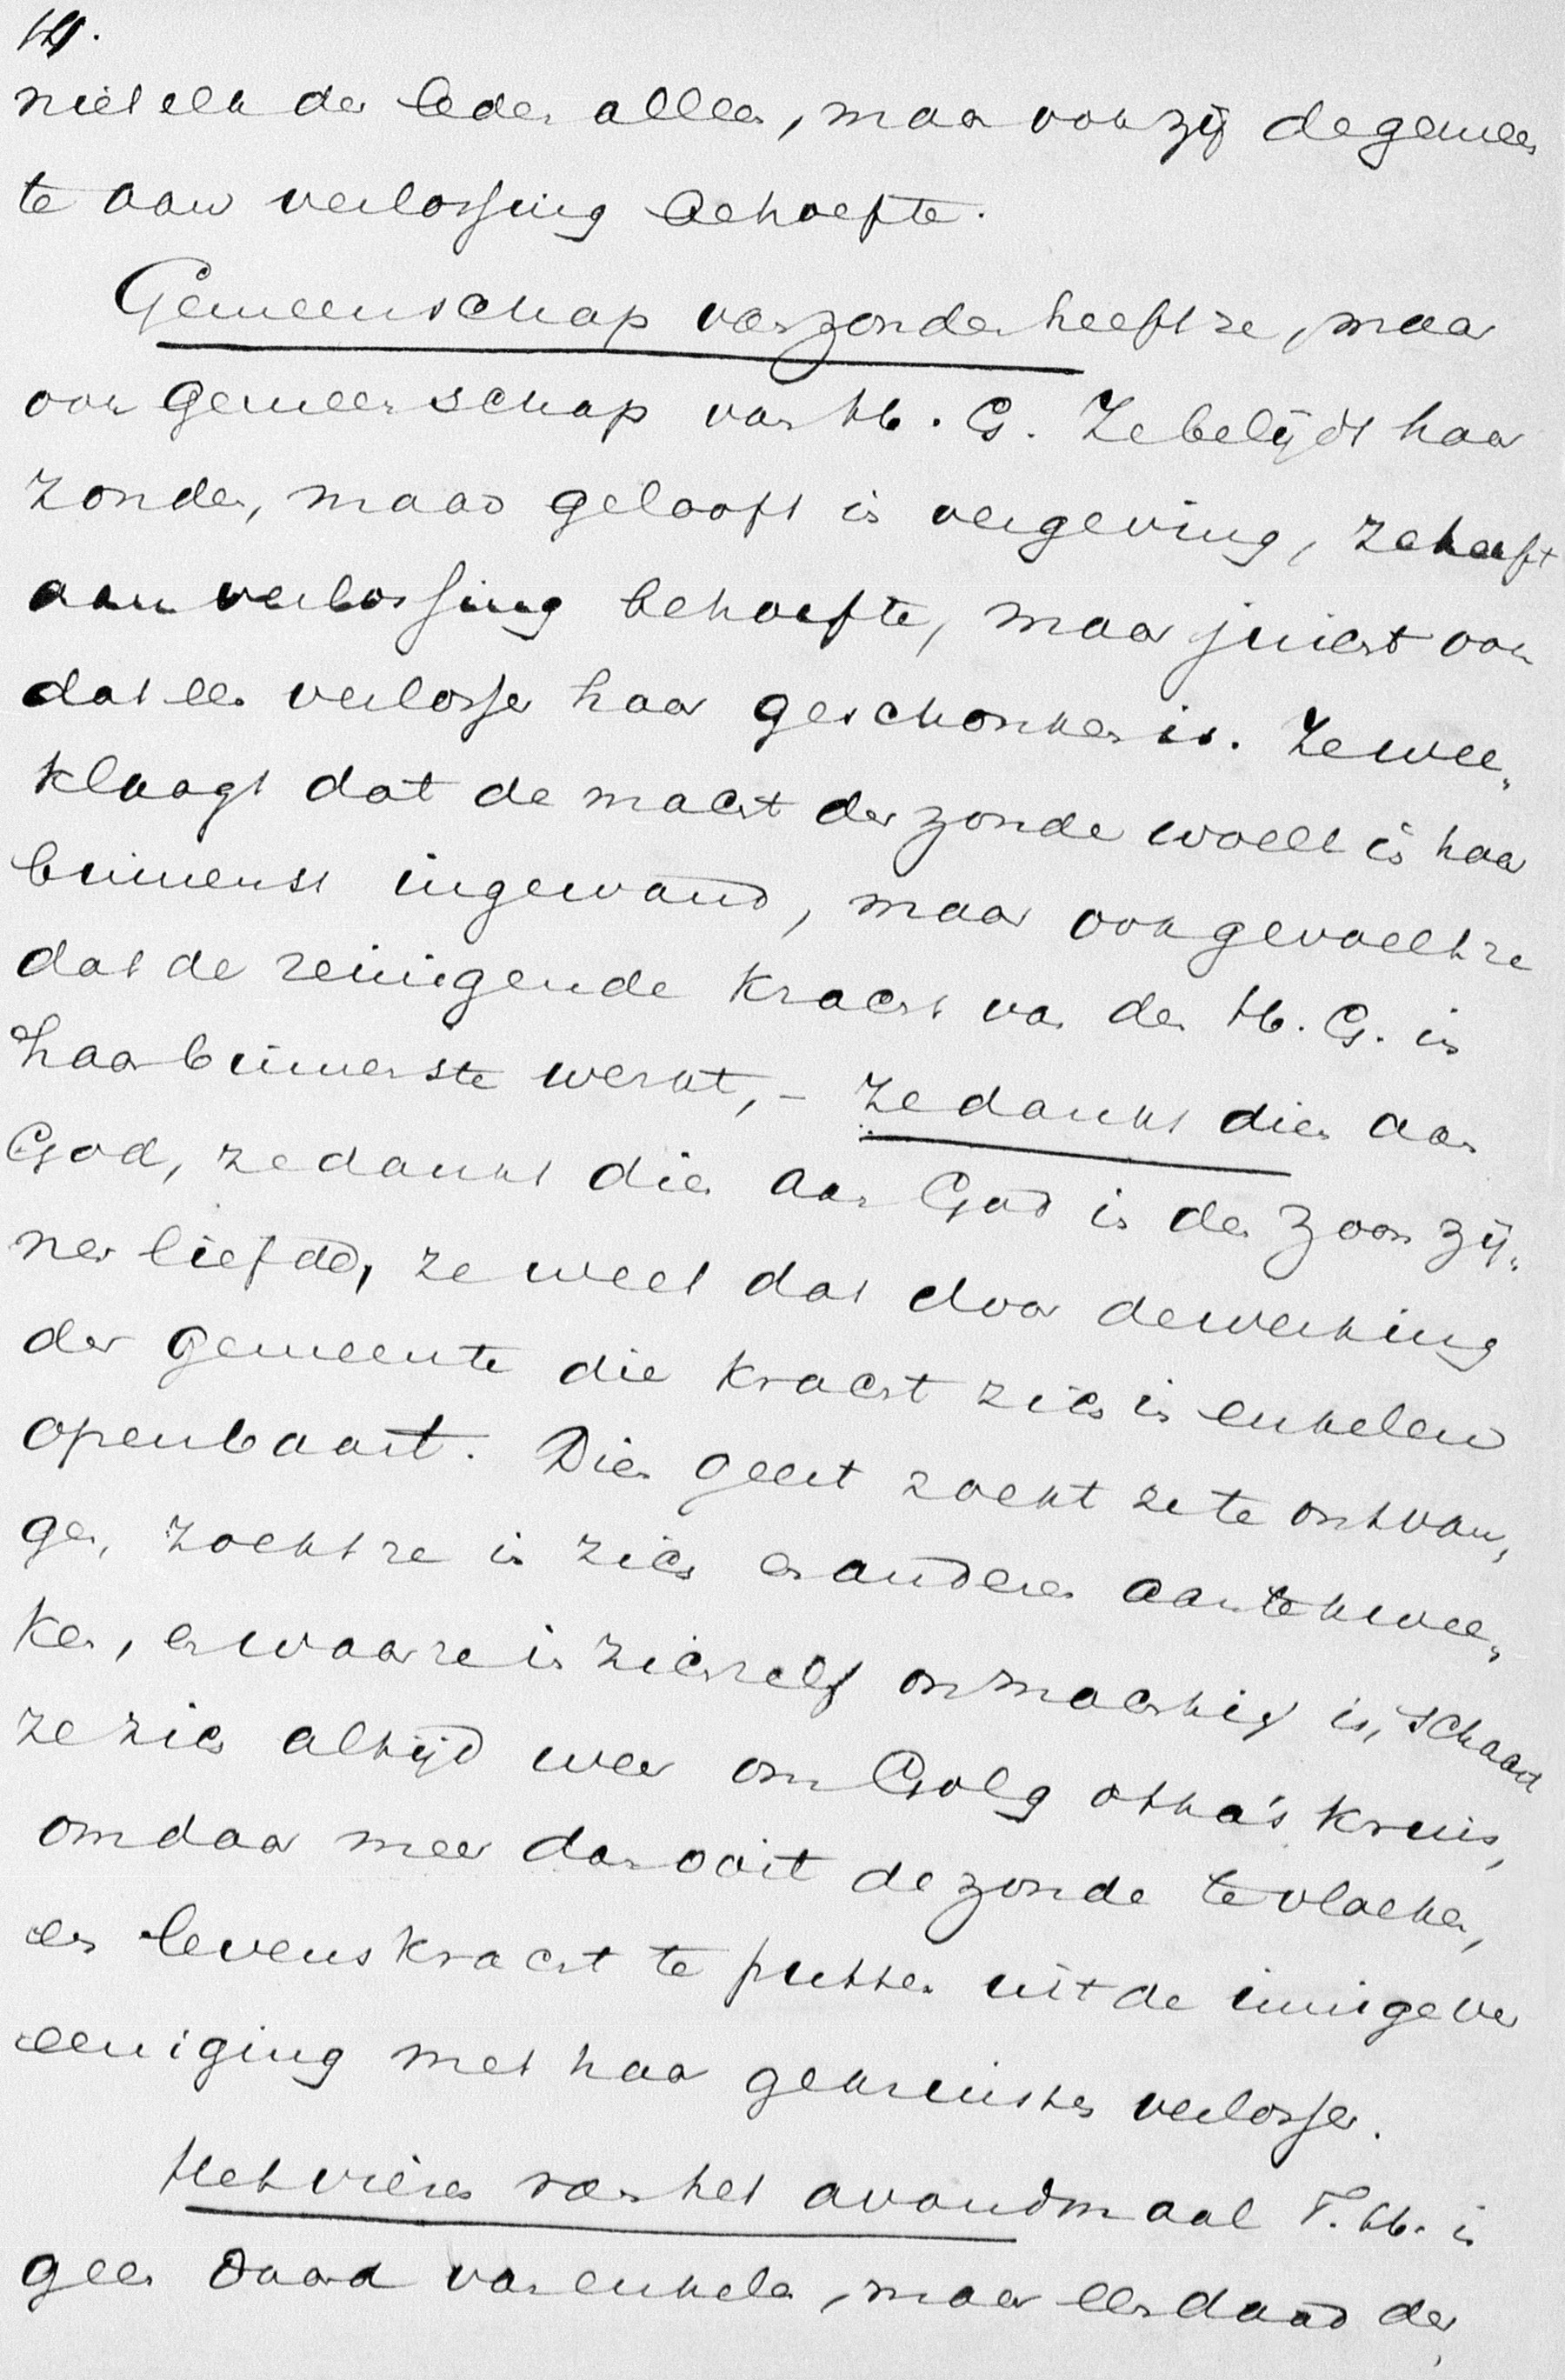 14.
niet elk der leden alleen, maar ook zij de gemeen
te aan verlossing behoefte.
Gemeenschap van zonden heeft ze, maar
ook gemeenschap van H. G. Ze belijdt haar
zonden, maar gelooft in vergeving, ze heeft
aan verlossing behoefte, maar juicht ook
dat een verlosser haar geschonken is. Ze wee„
klaagt dat de macht der zonde woelt in haar
binnenst ingewand, maar ook gevoelt ze
dat de reinigende kracht van den H. G. in
haar binnenste werkt, – ze dankt dien aan
God, ze dankt dien aan God in den Zoon zij„
ner liefde, ze weet dat door de werking
der gemeente die kracht zich in enkelen
openbaart. Dien geest zoekt ze te ontvan„
gen, zoekt ze in zich en anderen aan te kwee„
ken, en waar ze in zichzelf onmachtig is, schaart
ze zich altijd weer om Golgotha's kruis,
om daar meer dan ooit de zonde te vloeken,
en levenskracht te putten uit de innige ver
eeniging met haar gekruisten verlosser.
Het vieren van het avondmaal T. H. is
geen daad van enkelen, maar een daad der